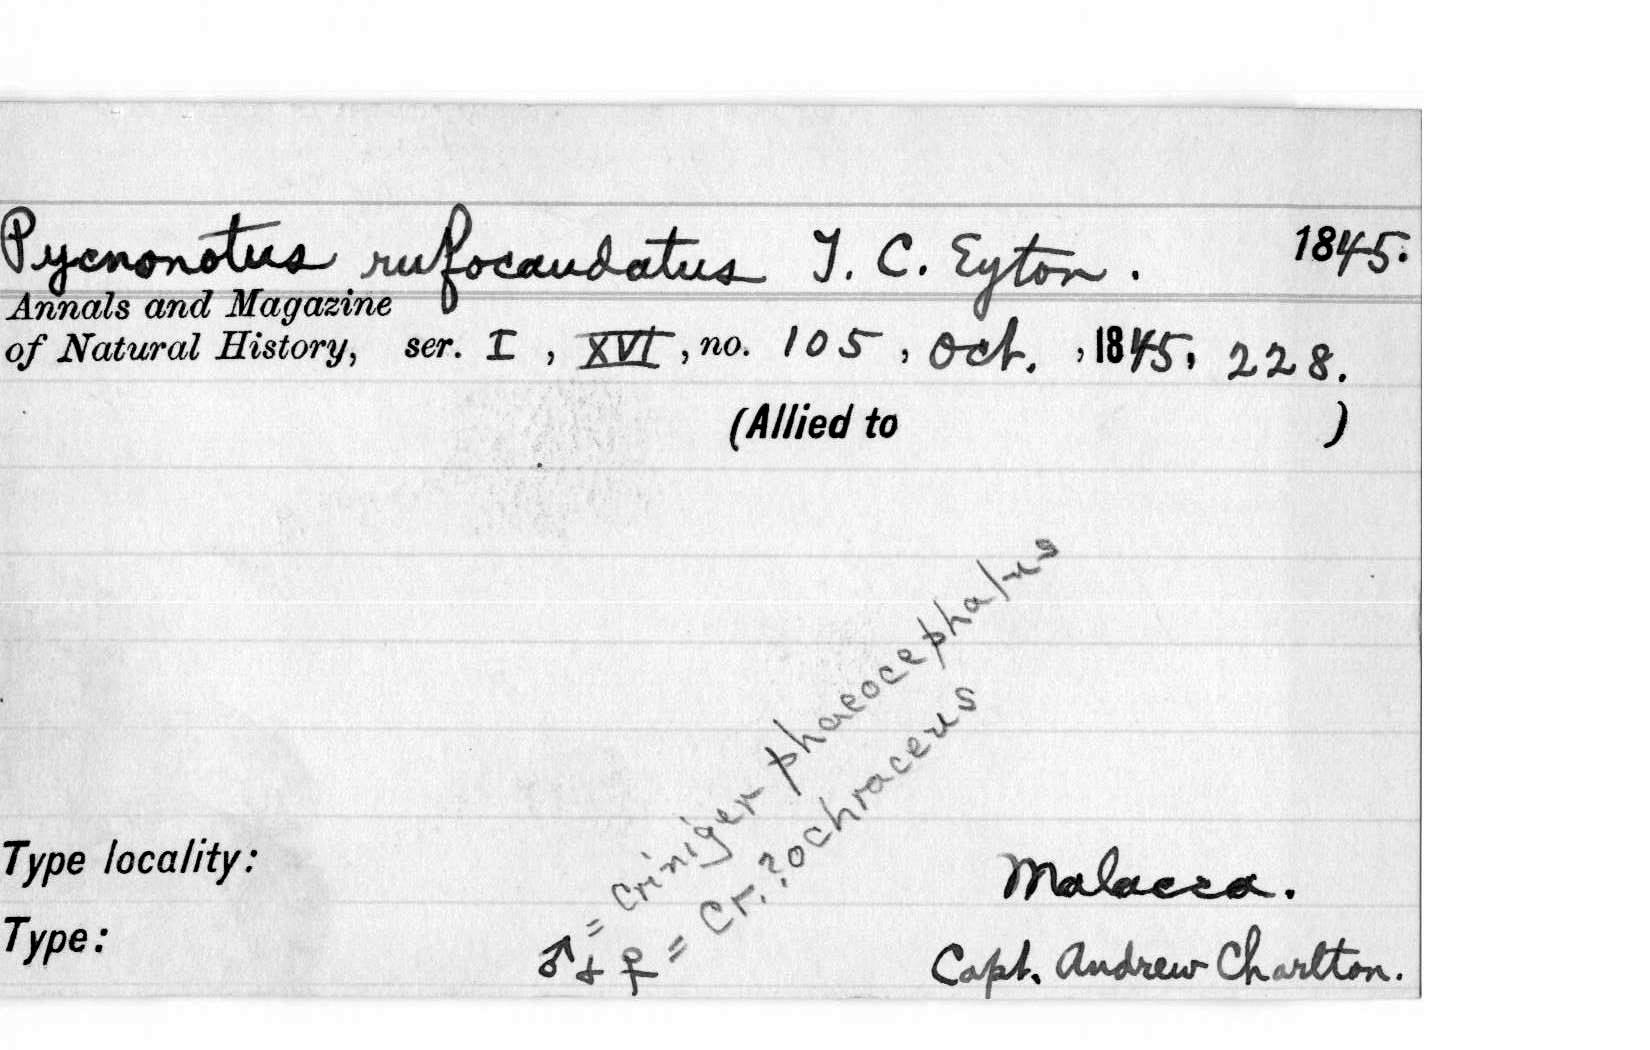 Pycnonotus rufocaudatus T. C. Eyton. 1845.
Annals and Magazine
of Natural History, ser. I, XVI, no. 105, Oct., 1845, 228.
(Allied to )
= Criniger phaeocephalus
= Cr. ? ochraceus
Type locality: Malacca.
Type: ♂ & ♀ Capt. Andrew Charlton.